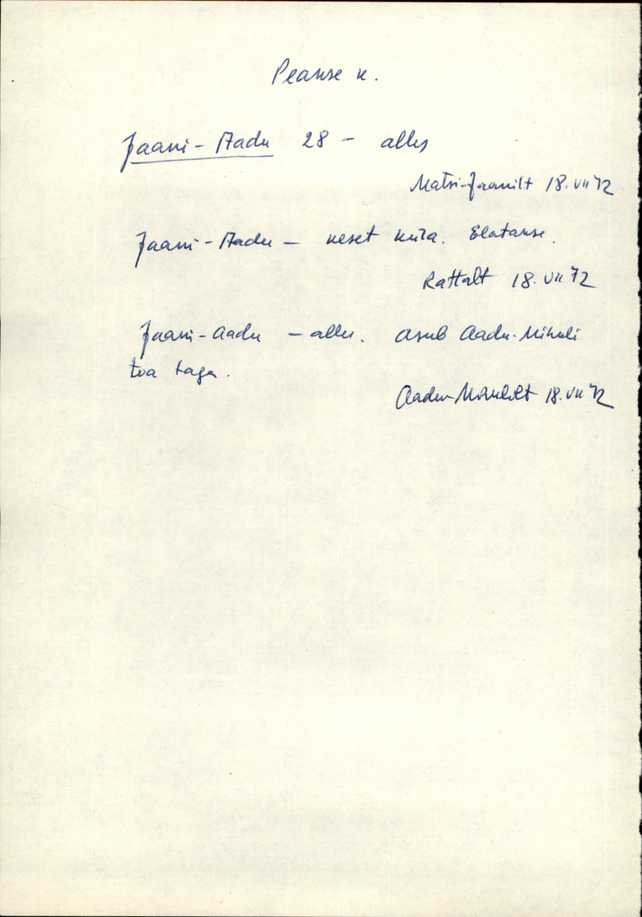 Peanse k.
Jaani-Aadu 28 – alles
Matsi-Jaanilt 18.VII 72
Jaani-Aadu – keset küla. Elatanse.
Rattalt 18.VII 72
Jaani-Aadu – alles. Asub Aadu-Mihkli
toa taga.
Aadu-Mihklilt 18.VII 72